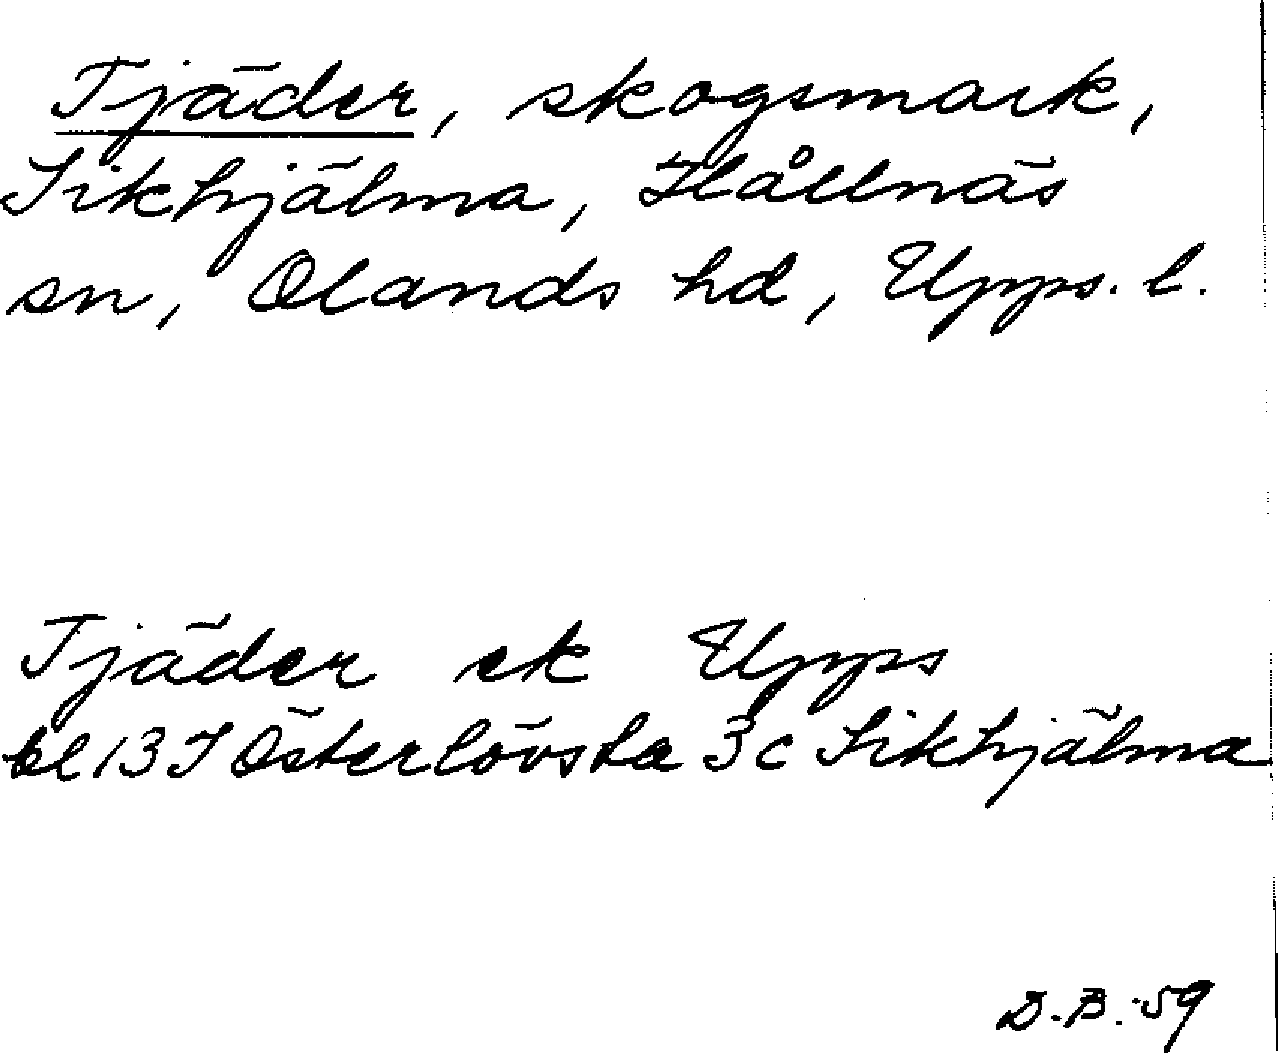 Tjäder, skogsmark,
Sikhjälma, Hållnäs
sn, Olands hd, Upps. l.
Tjäder ek Upps
bl 13 I Österlövsta 3c Sikhjälma
D.B. -59